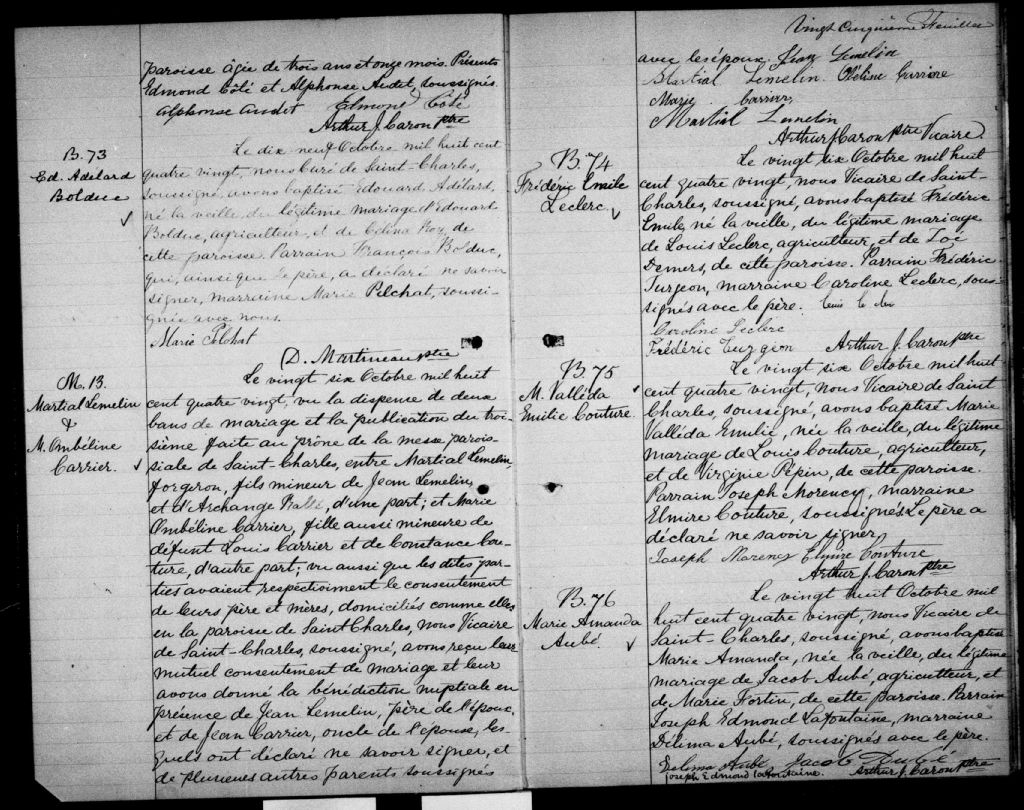 paroisse âgée de trois ans et onze mois. Présents
Edmond Côté et Alphonse Audet, soussignés.
Alphonse Audet Elmond Coté
Arthur J. Caron Ptre
B. 73
Ed. Adélard
Bolduc
Le dix neuf Octobre mil huit cent
quatre vingt, nous Curé de Saint-Charles,
soussigné, avons baptisé Edouard Adélard,
né la veille, du légitime mariage d'Edouard
Bolduc, agriculteur, et de Célina Roy, de
cette paroisse. Parrain François Bolduc,
qui, ainsi que le père, a déclaré ne savoir
signer, marraine Marie Pelchat, soussi-
gnée avec nous.
Marie Pelchat
D. Martineau ptre
M. 13.
Martial Lemelin
&
M. Ombéline
Carrier.
Le vingt six Octobre mil huit
cent quatre vingt, vu la dispense de deux
bans de mariage et la publication du troi-
sième faite au prône de la messe parois-
siale de Saint-Charles, entre Martial Lemelin,
forgeron, fils mineur de Jean Lemelin,
et d'Archange, d'une part; et Marie
Ombéline Carrier, fille aussi mineure de
défunt Louis Carrier et de Constance Cou-
ture, d'autre part; vu aussi que les dites par-
ties avaient respectivement le consentement
de leurs père et mères, domiciliés comme elles
en la paroisse de Saint Charles, nous Vicaire
de Saint-Charles, soussigné, avons reçu leur
mutuel consentement de mariage et leur
avons donné la bénédiction nuptiale en
présence de Jean Lemelin, père de l'époux,
et de Jean Carrier, oncle de l'épouse, les
quels ont déclaré ne savoir signer, et
de plusieurs autres parents soussignés
Vingt Cinquième Feuillet
avec les époux. Jean Lemelin
Martial Lemelin. Céline
Marie Carrier,
Martial Lemelin
Arthur J. Caron Ptre Vicaire
B. 74
Frédéric Emile
Leclerc.
Le vingt six Octobre mil huit
cent quatre vingt, nous Vicaire de Saint-
Charles, soussigné, avons baptisé Frédéric
Emile, né la veille, du légitime mariage
de Louis Leclerc, agriculteur, et de Zoé
Demers, de cette paroisse. Parrain Frédéric
Turgeon, marraine Caroline Leclerc, sous-
signés avec le père.
Caroline Leclerc
Frédéric Turgeon Arthur J. Caron Ptre
B. 75
M. Valléda
Emilie Couture.
Le vingt six Octobre mil huit
cent quatre vingt, nous Vicaire de Saint
Charles, soussigné, avons baptisé Marie
Valléda Emilie, née la veille, du légitime
mariage de Louis Couture, agriculteur,
et de Virginie Pépin, de cette paroisse.
Parrain Joseph Morency, marraine
Elmire Couture, soussignés. Le père a
déclaré ne savoir signer.
Joseph Morency Elmire Couture
Arthur J. Caron Ptre
B. 76
Marie Amanda
Aubé.
Le vingt huit Octobre mil
huit cent quatre vingt, nous Vicaire de
Saint-Charles, soussigné, avons baptisé
Marie Amanda, née la veille, du légitime
mariage de Jacob Aubé, agriculteur, et
de Marie Fortin, de cette paroisse. Parrain
Joseph Edmond Lafontaine, marraine
Délima Aubé, soussignés avec le père.
Delima Aubé Jacob Aubé
Joseph Edmond Lafontaine. Arthur J. Caron Ptre